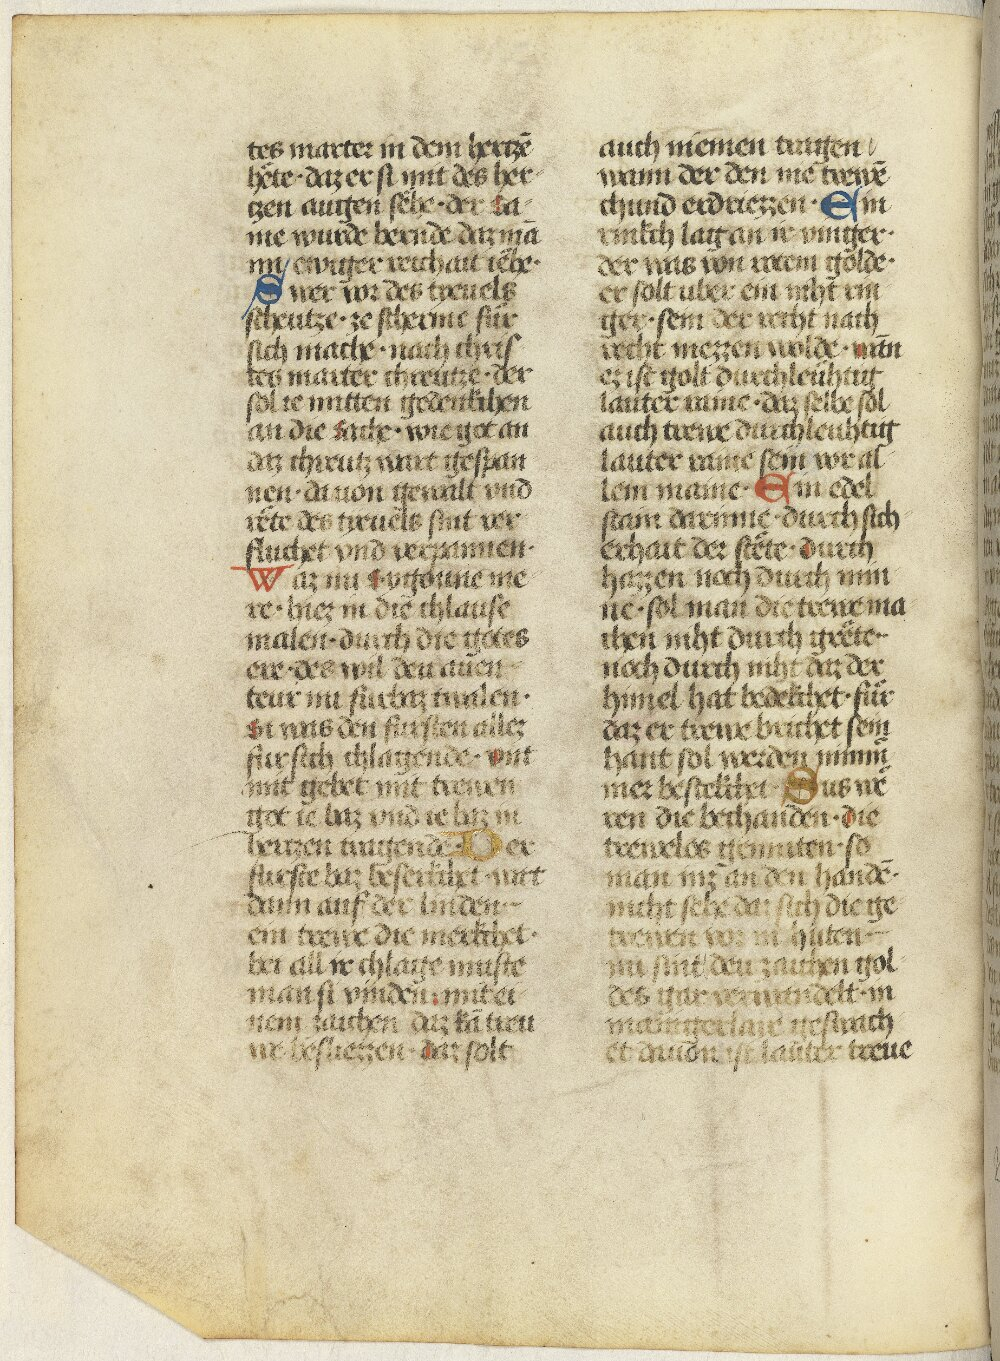 tes marter in dem hertzē
hete · daz er si mit des her
tzen augen sehe · der sa
me wurde bernde daz mā
im ewiger reichait iehe ·
Swer vor des tevuels
scheutze · ze scherme fur
sich mache · nach chris
tes marter chreutze · der
sol ie mitten gedenkchen
an die sache · wie got an
daz chreutz wart gespan
nen · da uon gewalt vnd
rete des tieuels sint ver
fluchet vnd verpannen ·
Waz mi sygoune me
re · hiez in die chlause
malen · durch die gotes
ere · des wil deu auen
teur mi furbaz twalen ·
Si was den fursten allez
fur sich chlagende · vnt
mit gebet mit trewen
got ie baz vnd ie baz in
hertzen tragende · Der
furste baz beserkchet · wirt
dann auf der linden
ein trewe die merkchet ·
bei all ir chlage muste
man si vinden · mit ei
nem zaichen daz kā treu
we besliezzen · daz solt
auch niemen tragen
wann der den nie trewē
chund erdriezzen · Ein
rinkch lag an ir vinger ·
der was von rotem golde ·
er solt uber ein niht rin
ger · sein der recht nach
recht mezzen wolde · wan
ez ist golt durchleuhtig
lauter raine · daz selbe sol
auch trewe durchleuhtig
lauter raine sein vor al
lem maine · Ein edel
stain darinne · durch sich
erhait der stete · durch
hazzen noch durch min
ne · sol man die trewe ma
chen niht durch grete
noch durch niht daz der
himel hat bedekchet · fur
daz er trewe brichet sein
hant sol werden nimm
mer bestekchet · Sus we
ren die bechanden · die
trewelos gemuten · so
man inz an den handē ·
nicht sehe daz sich die ge
trewen vor in huten
nu sint deu zaichen gol
des gar verwandelt · in
maingerlaie gestaach
et dauon ist lauter treue